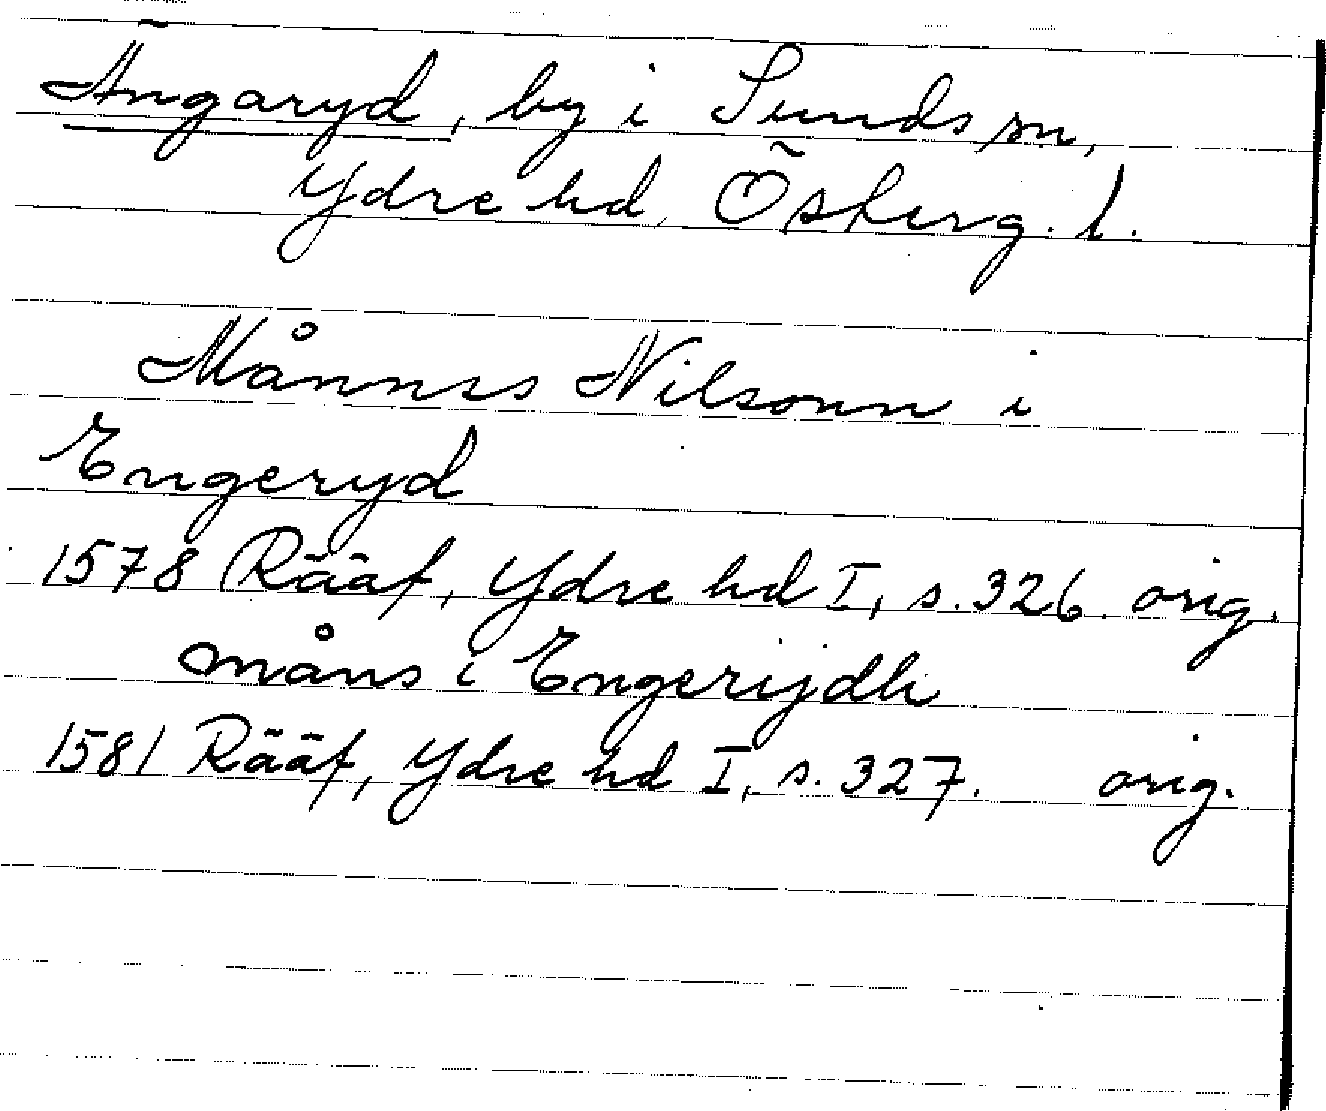 Ängaryd, by i Sunds sn,
Ydre hd, Östерg. l.
Månnss Nilsonn i
Engeryd
1578 Rääf, Ydre hd I, s. 326. orig.
måns i Engerijdh
1581 Rääf, Ydre hd I, s. 327. orig.